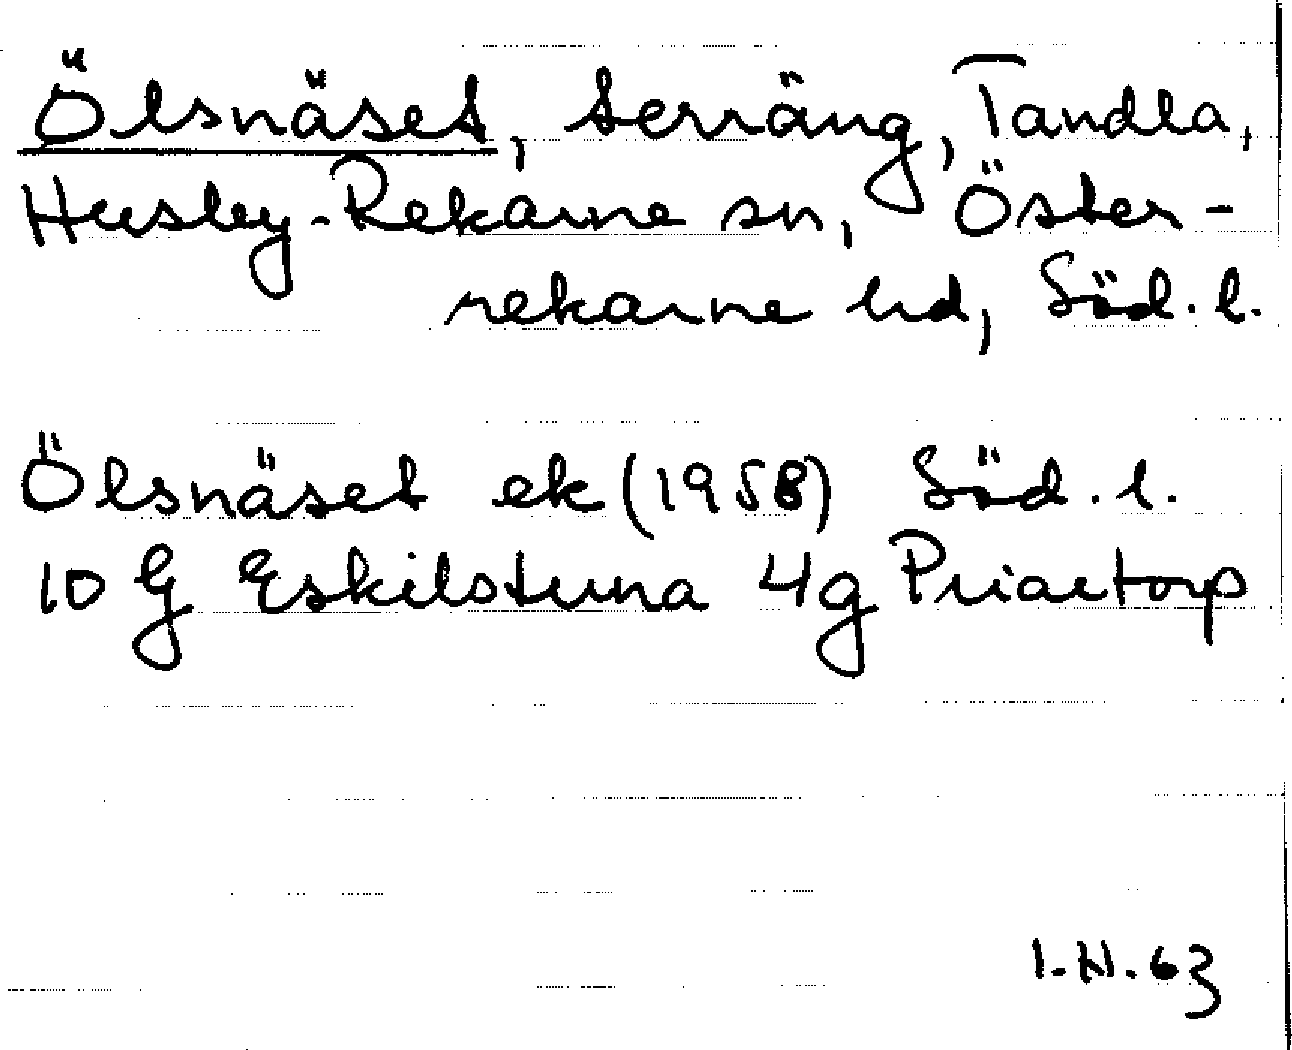 Ölsnäset, terräng, Tandla,
Husby-Rekarne sn, Öster-
rekarne hd, Söd. l.
Ölsnäset ek (1958) Söd. l.
10 G Eskilstuna 4g
I.N. 63